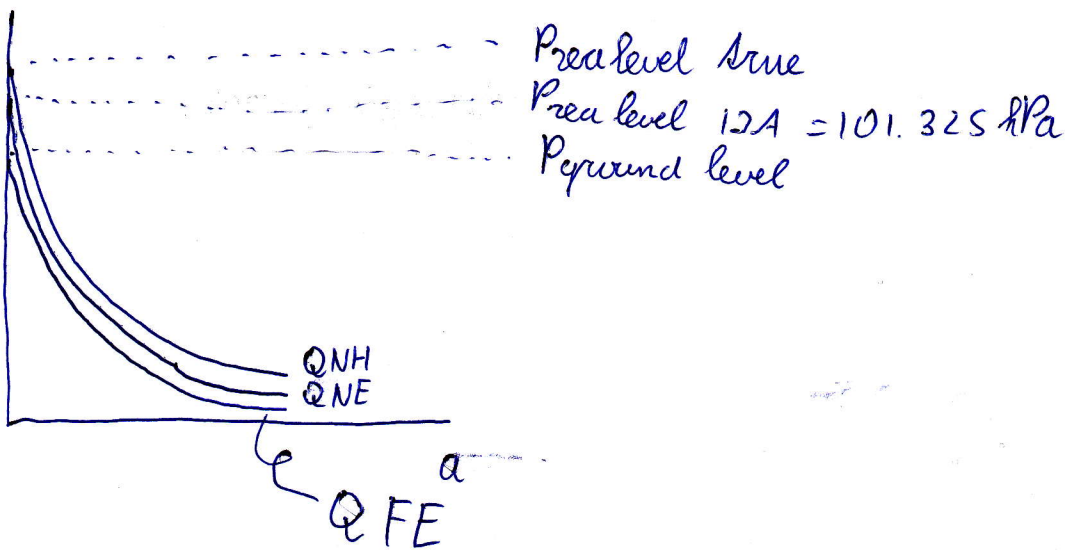 Psea level true
Psea level ISA = 101.325 hPa
Pground level
QNH
QNE
a
QFE